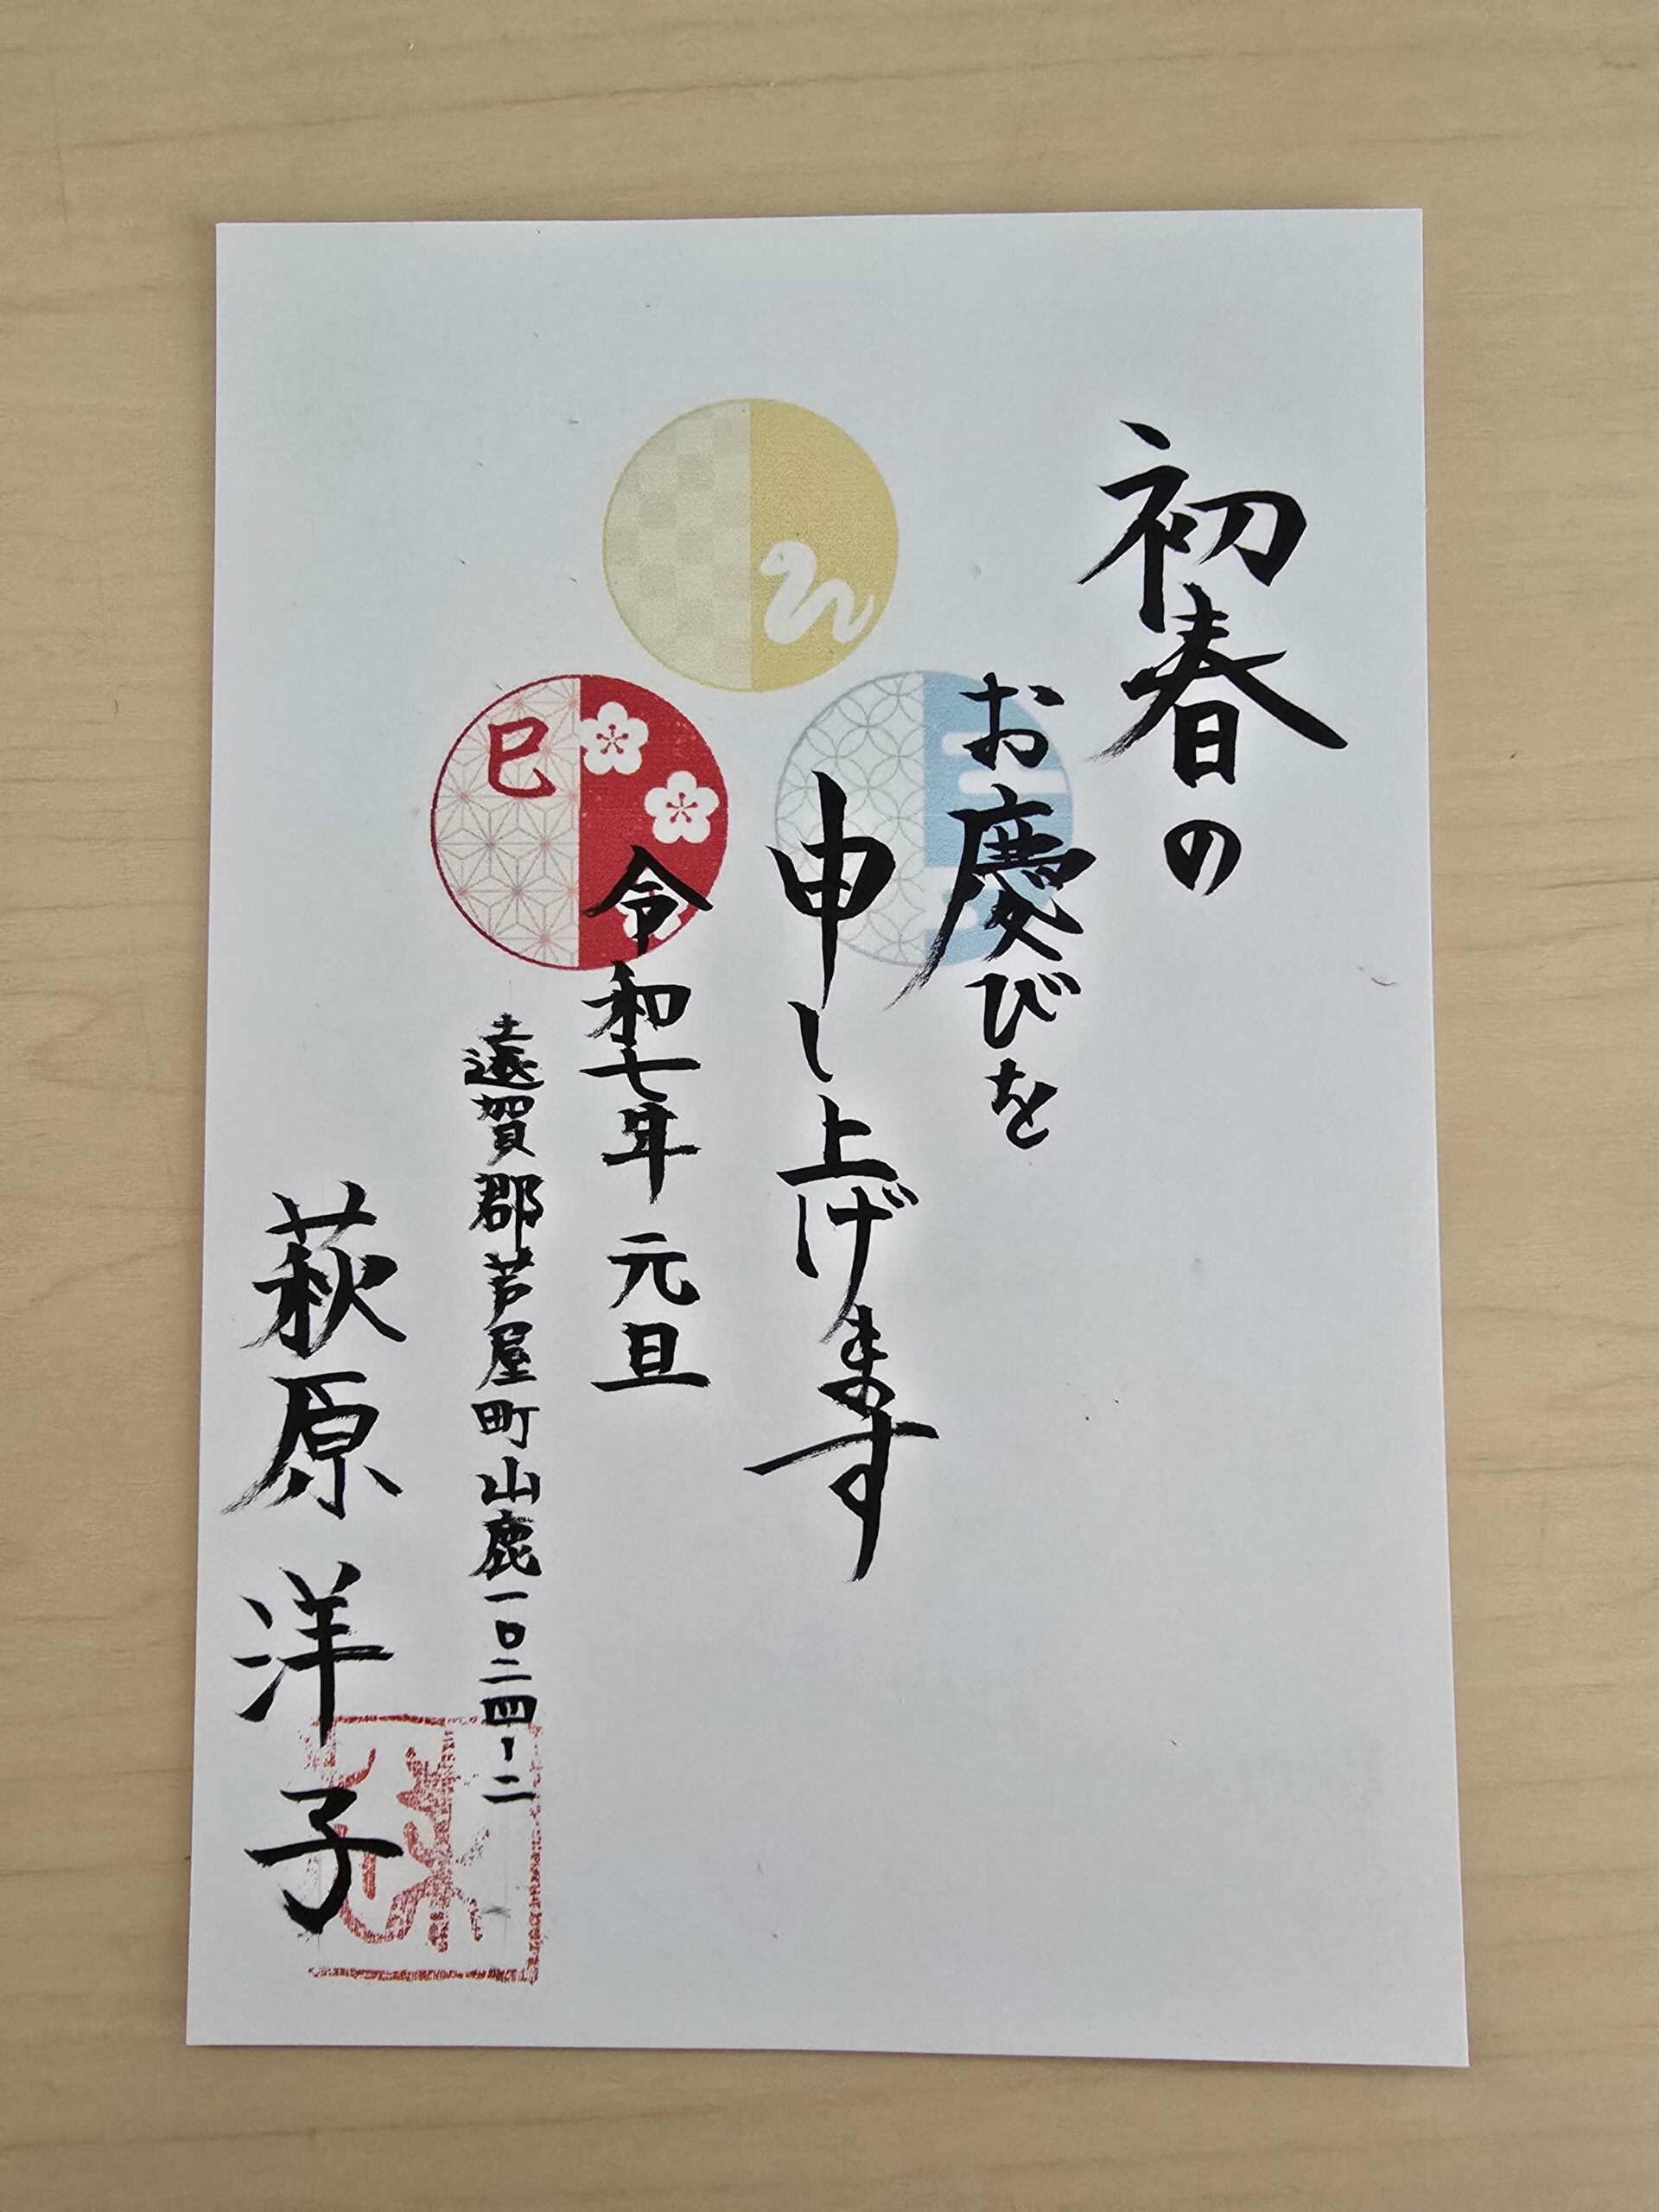 初春の
お慶びを
申し上げます
令和七年 元旦
遠賀郡芦屋町山鹿一〇二四-二
萩原 洋子
巳